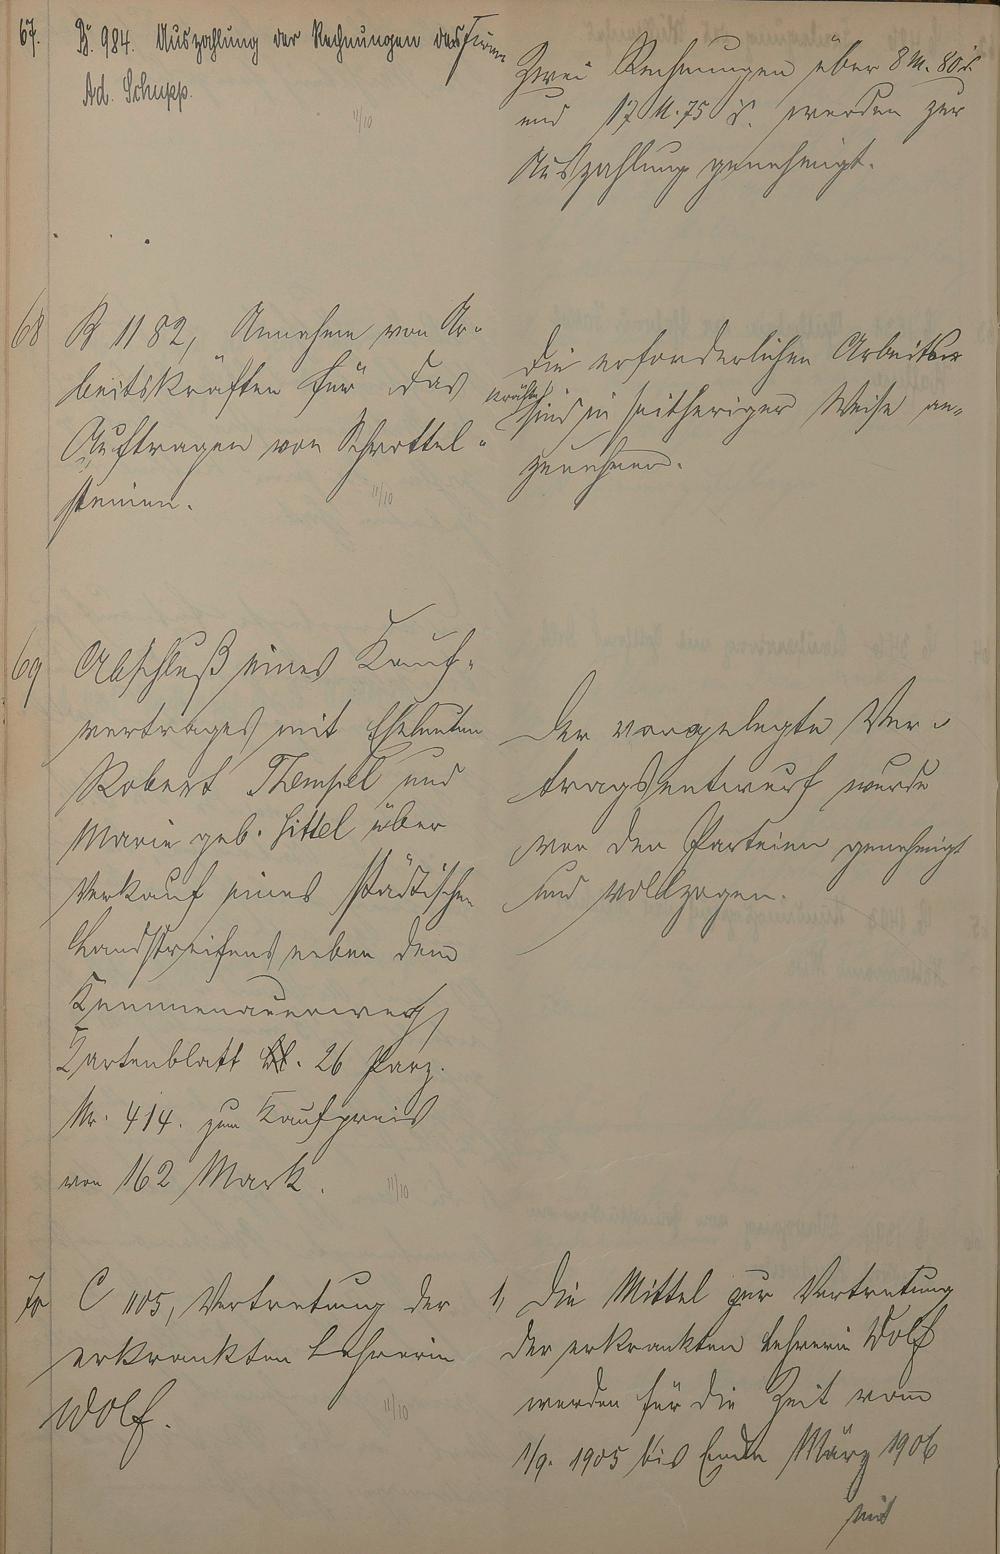 67. B. 984. Auszahlung der Rechnungen der Firma
Ad. Schupp.
11/10
Zwei Rechnungen über 8 M. 80 d.
und 17 M. 75 d. werden zur
Auszahlung genehmigt.
68 B 1182, Annahme von Ar-
beitskräften für das
Auftragen von Schrottel-
steinen.
11/10
Die erforderlichen Arbeits
kräfte sind in seitheriger Weise an-
zunehmen.
69 Abschluß eines Kauf-
vertrages mit Eheleuten
Robert und
Marie geb. Hittel über
Verkauf eines städtischen
Landstreifens neben dem
Kemmenauerweg,
Kartenblatt 26 Parz.
Nr. 414. zum Kaufpreis
von 162 Mark.
11/10
Der vorgelegte Ver-
tragsentwurf wurde
von den Parteien genehmigt
und vollzogen.
70 C 1105, Vertretung der
erkrankten Lehrerin
Wolf.
11/10
1, Die Mittel zur Vertretung
der erkrankten Lehrerin Wolf
werden für die Zeit vom
1/9. 1905 bis Ende März 1906
mit